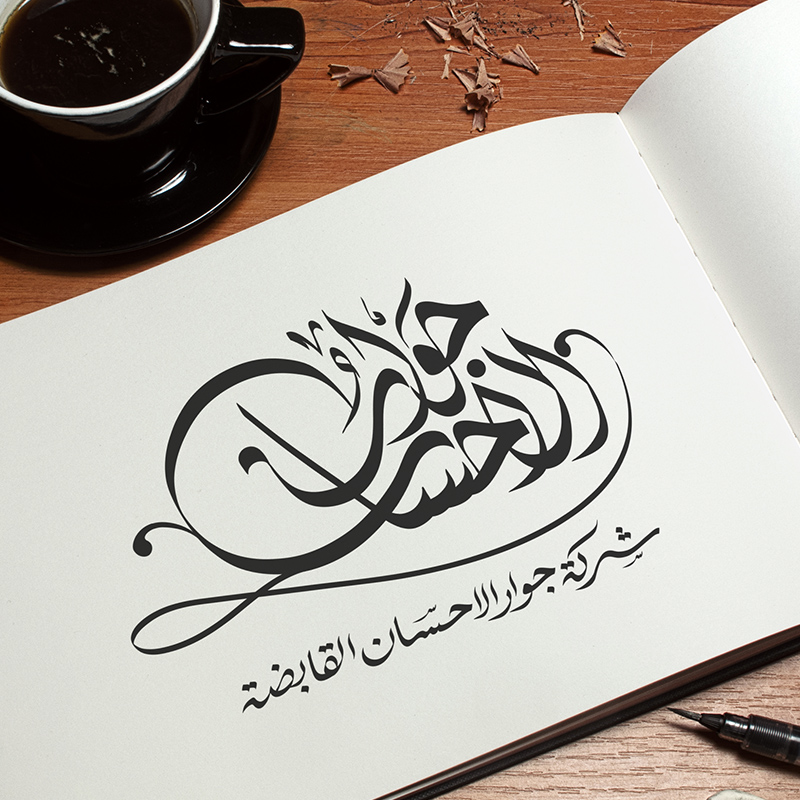 جوار
الاحسان
شركة جوار الاحسان القابضة